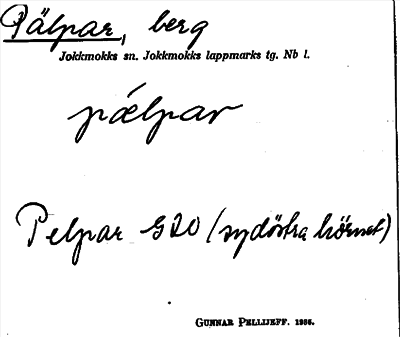 Pälpar, berg
Jokkmokks sn. Jokkmokks lappmarks tg. Nb l.
pǽlpar
Pelpar GÄO (sydöstra hörnet)
GUNNAR PELLIJEFF. 1955.